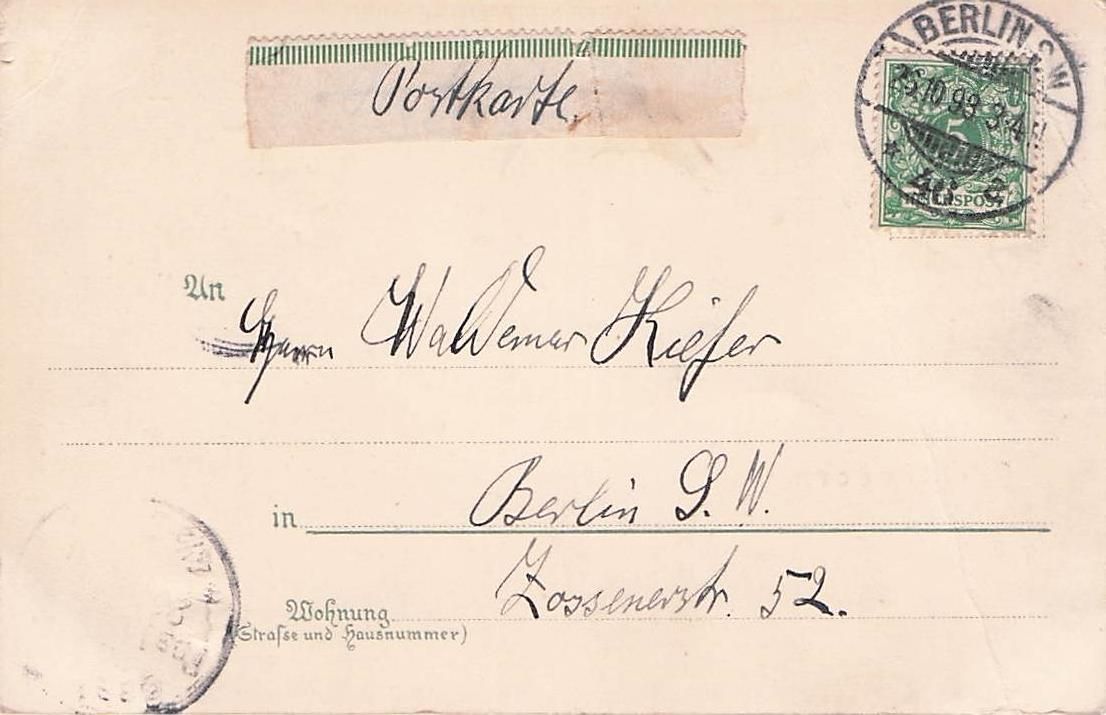 Postkarte.
BERLIN S.W.
26.10.99 3-4 N
* 46 a
5
REICHSPOST
An
Herrn Waldemar Kiefer
in Berlin S. W.
Zossenerstr. 52.
Wohnung
(Strafse und Hausnummer)